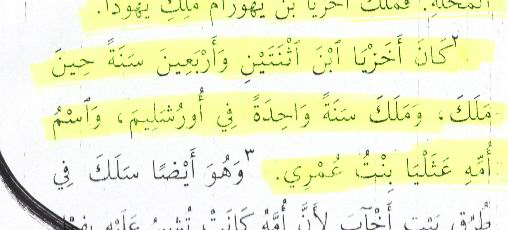 المحلة. فملك أخزيا بن يهورام ملك يهوذا.
٢كَانَ أَخَزْيَا ٱبْنَ ٱثْنَتَيْنِ وَأَرْبَعِينَ سَنَةً حِينَ
مَلَكَ، وَمَلَكَ سَنَةً وَاحِدَةً فِي أُورُشَلِيمَ، وَٱسْمُ
أُمِّهِ عَثَلْيَا بِنْتُ عُمْرِي. ٣وَهُوَ أَيْضًا سَلَكَ فِي
طُرُقِ بَيْتِ أَخْآبَ لِأَنَّ أُمَّهُ كَانَتْ تُشِيرُ عَلَيْهِ